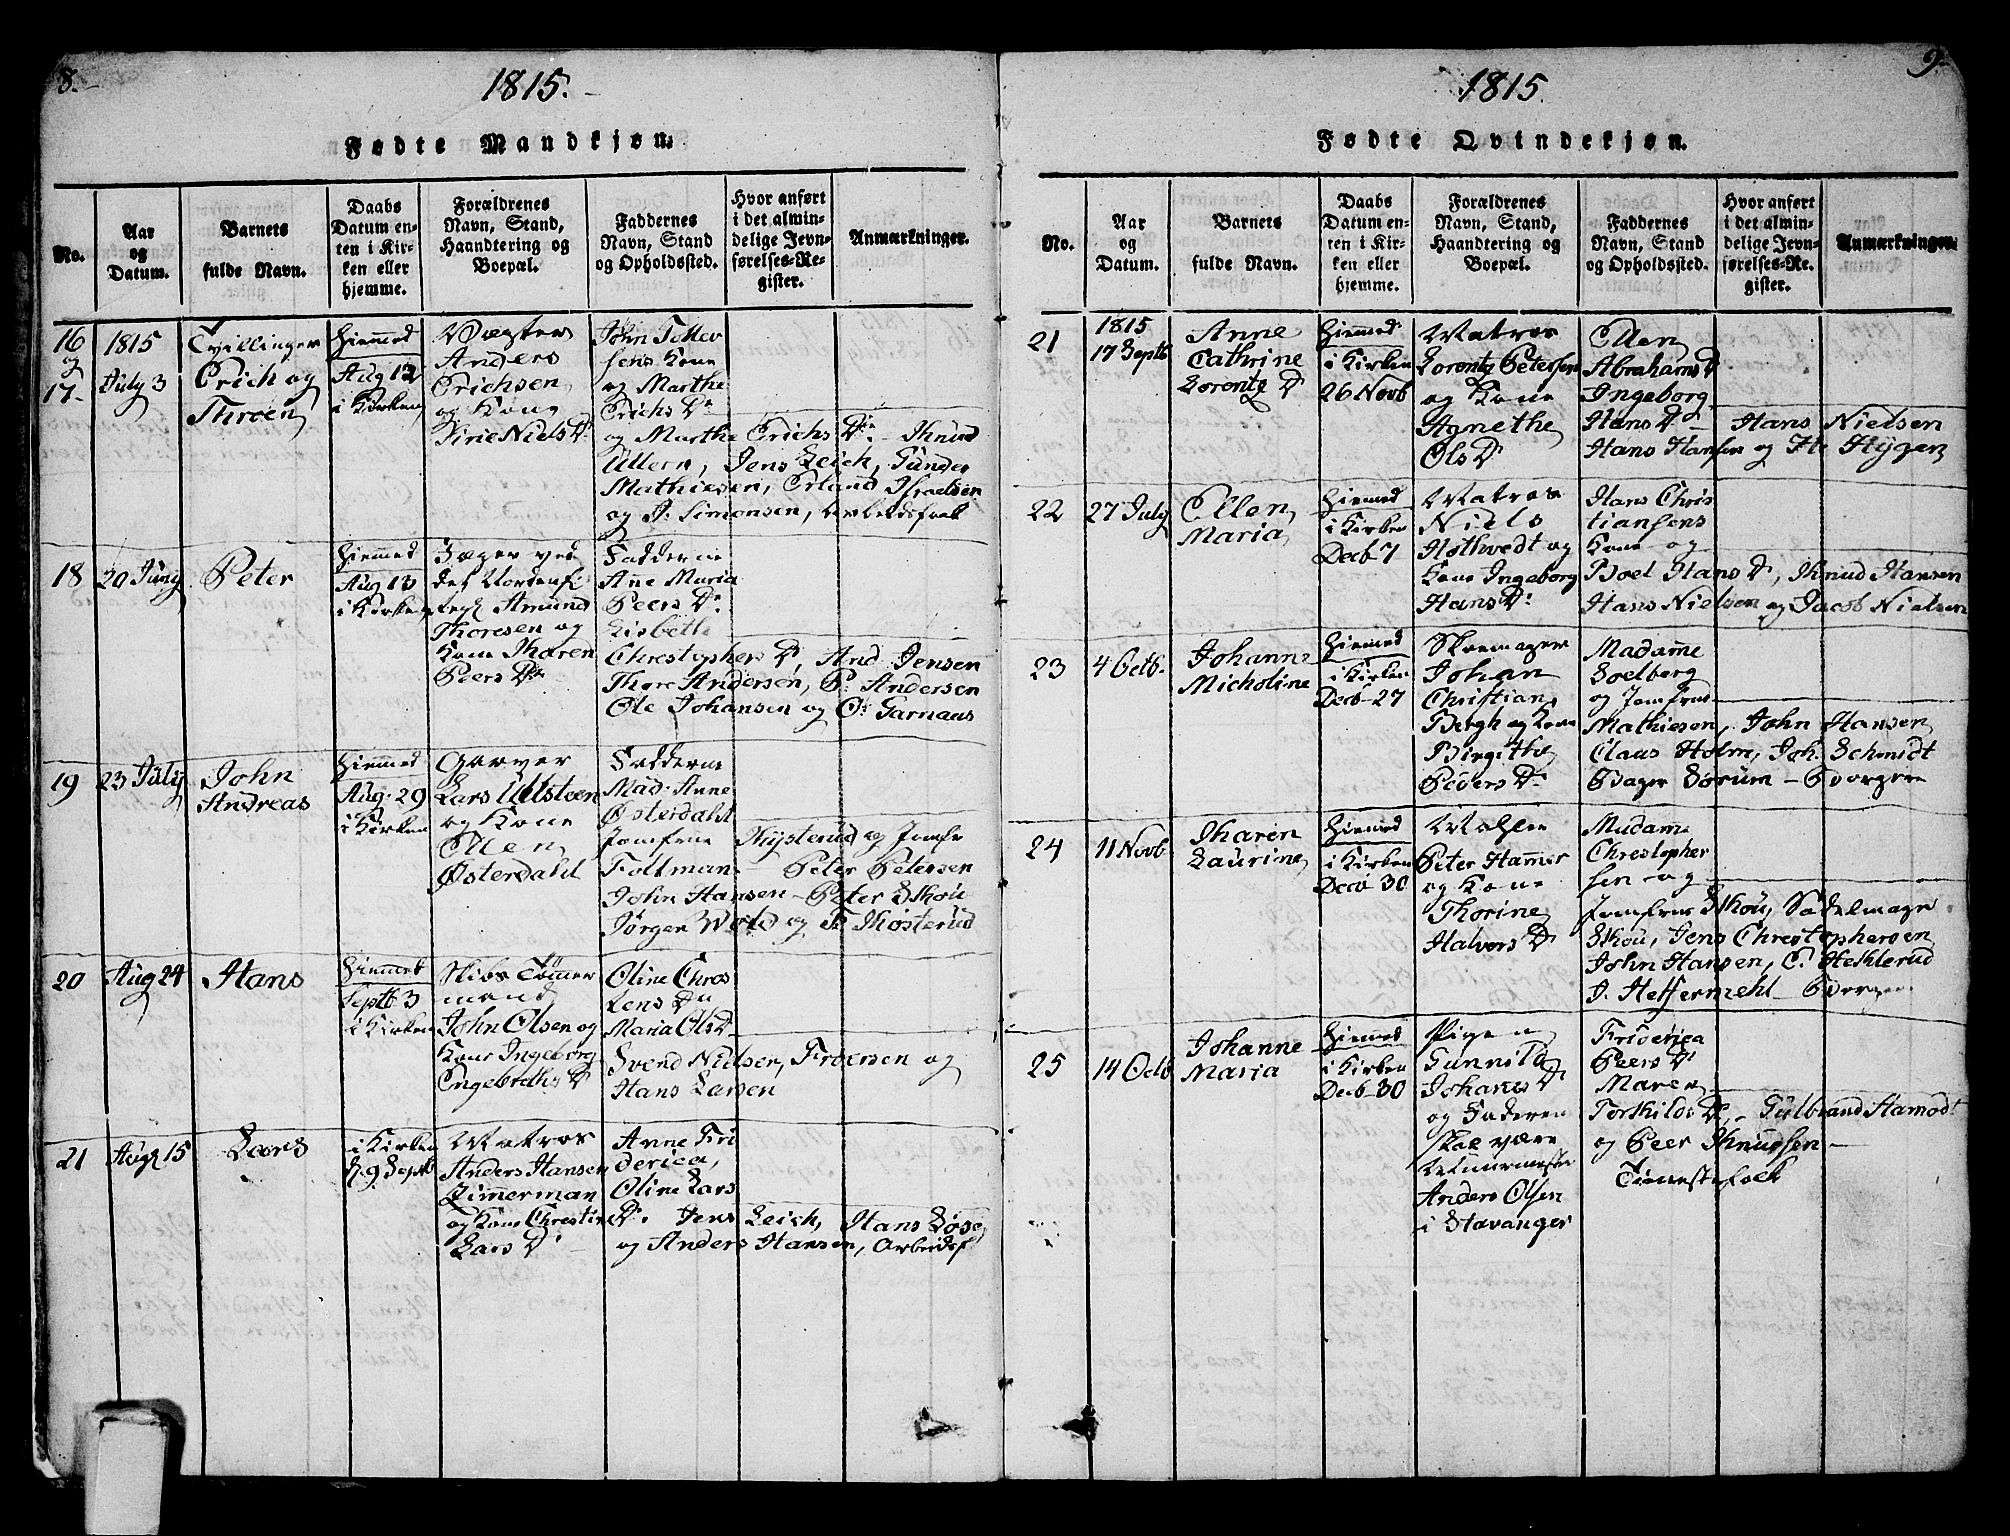 8.
1815.
Fødte Mandkjøn.
No.
Aar
og
Datum.
Barnets
fulde Navn.
Daabs
Datum en-
ten i Kir-
ken eller
hjemme.
Forældrenes
Navn, Stand,
Haandtering og
Boepæl.
Faddernes
Navn, Stand
og Opholdssted.
Hvor anført
i det almin-
delige Jevn-
førelses-Re-
gister.
Anmærkninger.
16
og
17.
1815
July 3
Tvillinger
Erich og
Throen
Hiemmed
Aug 12
i Kirken
Vægter
Anders
Erichsen
og Kone
Sirie Niels Dr
John Tollev
sens Kone
og Marthe
Erichs Dr
og Marthe Erichs Dr. Knud
Ullern, Jens Leich, Gunder
Mathiesen, Erland Israelsen
og J. Simonsen, Arbeidsfolk
18
20 Juny
Peter
Hiemmed
Aug 13
i Kirken
Jæger ved
det Nordenfi
Amund
Thoresen og
Kone Karen
Peers Dr
Fadderne
Ane Maria
Peers Dr.
Lisbeth
Chrestophers Dr, And Jensen
Thore Andersen, P. Andersen
Ole Johansen og O. Garnaas
19
23 July
John
Andreas
Hiemmed
Aug. 29
i Kirken
Garver
Lars Ulsteen
og Kone
Ellen
Østerdahl
Fadderne
Mad. Anne
Østerdahl
Jomfrue Kysterud og Jomfr
Foltman - Peter Petersen
John Hansen - Peter Skou
Jørgen Wold og F. Kösterud
20
Aug 24
Hans
Hiemmed
Septb 3
i Kirken
Skibs Tømer
mand
John Olsen og
Kone Ingeborg
Engebreths Dr
Oline Chres
tens Dr
Maria Ols Dr
Svend Nielsen, Fr. Iversen og
Hans Larsen
21
Aug 15
Lars
i Kirken
d. 9 Septb
Matros
Anders Hansen
Zimmerman
og Kone Christine
Lars Dr
Anne Fri
derica,
Oline Lars
Dr. Jens Leich, Hans
og Anders Hansen, Arbeidsf
9.
1815.
Fødte Qvindekjøn.
No.
Aar
og
Datum.
Barnets
fulde Navn.
Daabs
Datum en-
ten i Kir-
ken eller
hjemme.
Forældrenes
Navn, Stand,
Haandtering og
Boepæl.
Faddernes
Navn, Stand
og Opholdssted.
Hvor anført
i det almin-
delige Jevn-
førelses-Re-
gister.
Anmærkninger.
21
1815
17 Septb
Anne
Cathrine
Lorentz Dr
Hiemmed
i Kirken
26 Novb
Matros
Lorentz Petersen
og Kone
Agnethe
Ols Dr
Ellen
Abrahams Dr
Ingeborg
Hans Dr - Hans Nielsen
Hans Hansen og Hr Hygen
22
27 July
Ellen
Maria
Hiemmed
i Kirken
Decb 7
Matros
Niels
Hothvedt og
Kone Ingeborg
Hans Dr.
Hans Chris
tiansens
Kone og
Boel Hans Dr, Knud Hansen
Hans Nielsen og Jacob Nielsen
23
4 Octb.
Johanne
Micholine
Hiemmed
i Kirken
Decb 27
Skomager
Johan
Christian
Bergh og Kone
Birgithe
Peders Dr
Madamme
Soelberg
og Jomfrue
Mathiesen, John Hansen
Claus Holm, Joh. Schmidt
Bager Sørum - Borgere
24
11 Novb.
Karen
Laurine
Hiemmed
i Kirken
Decb 30
Peter Hammer
og Kone
Thorine
Halvors Dr
Madame
Chrestopher
sen og
Jomfrue Skou, Sadelmager
Skou, Jens Chrestophersen
John Hansen, C. Heklerud
J. Heffermehl - Borgere
25
14 Octb
Johanne
Maria
Hiemmed
i Kirken
Decb 30
Pigen
Gunnild
Johanes Dr
og Faderen
skal være
Anders Olsen
i Stavanger
Friderica
Peers Dr
Maren
Torkilds Dr, Gulbrand Hamodt
og Peer Knudsen -
Tienestefolk